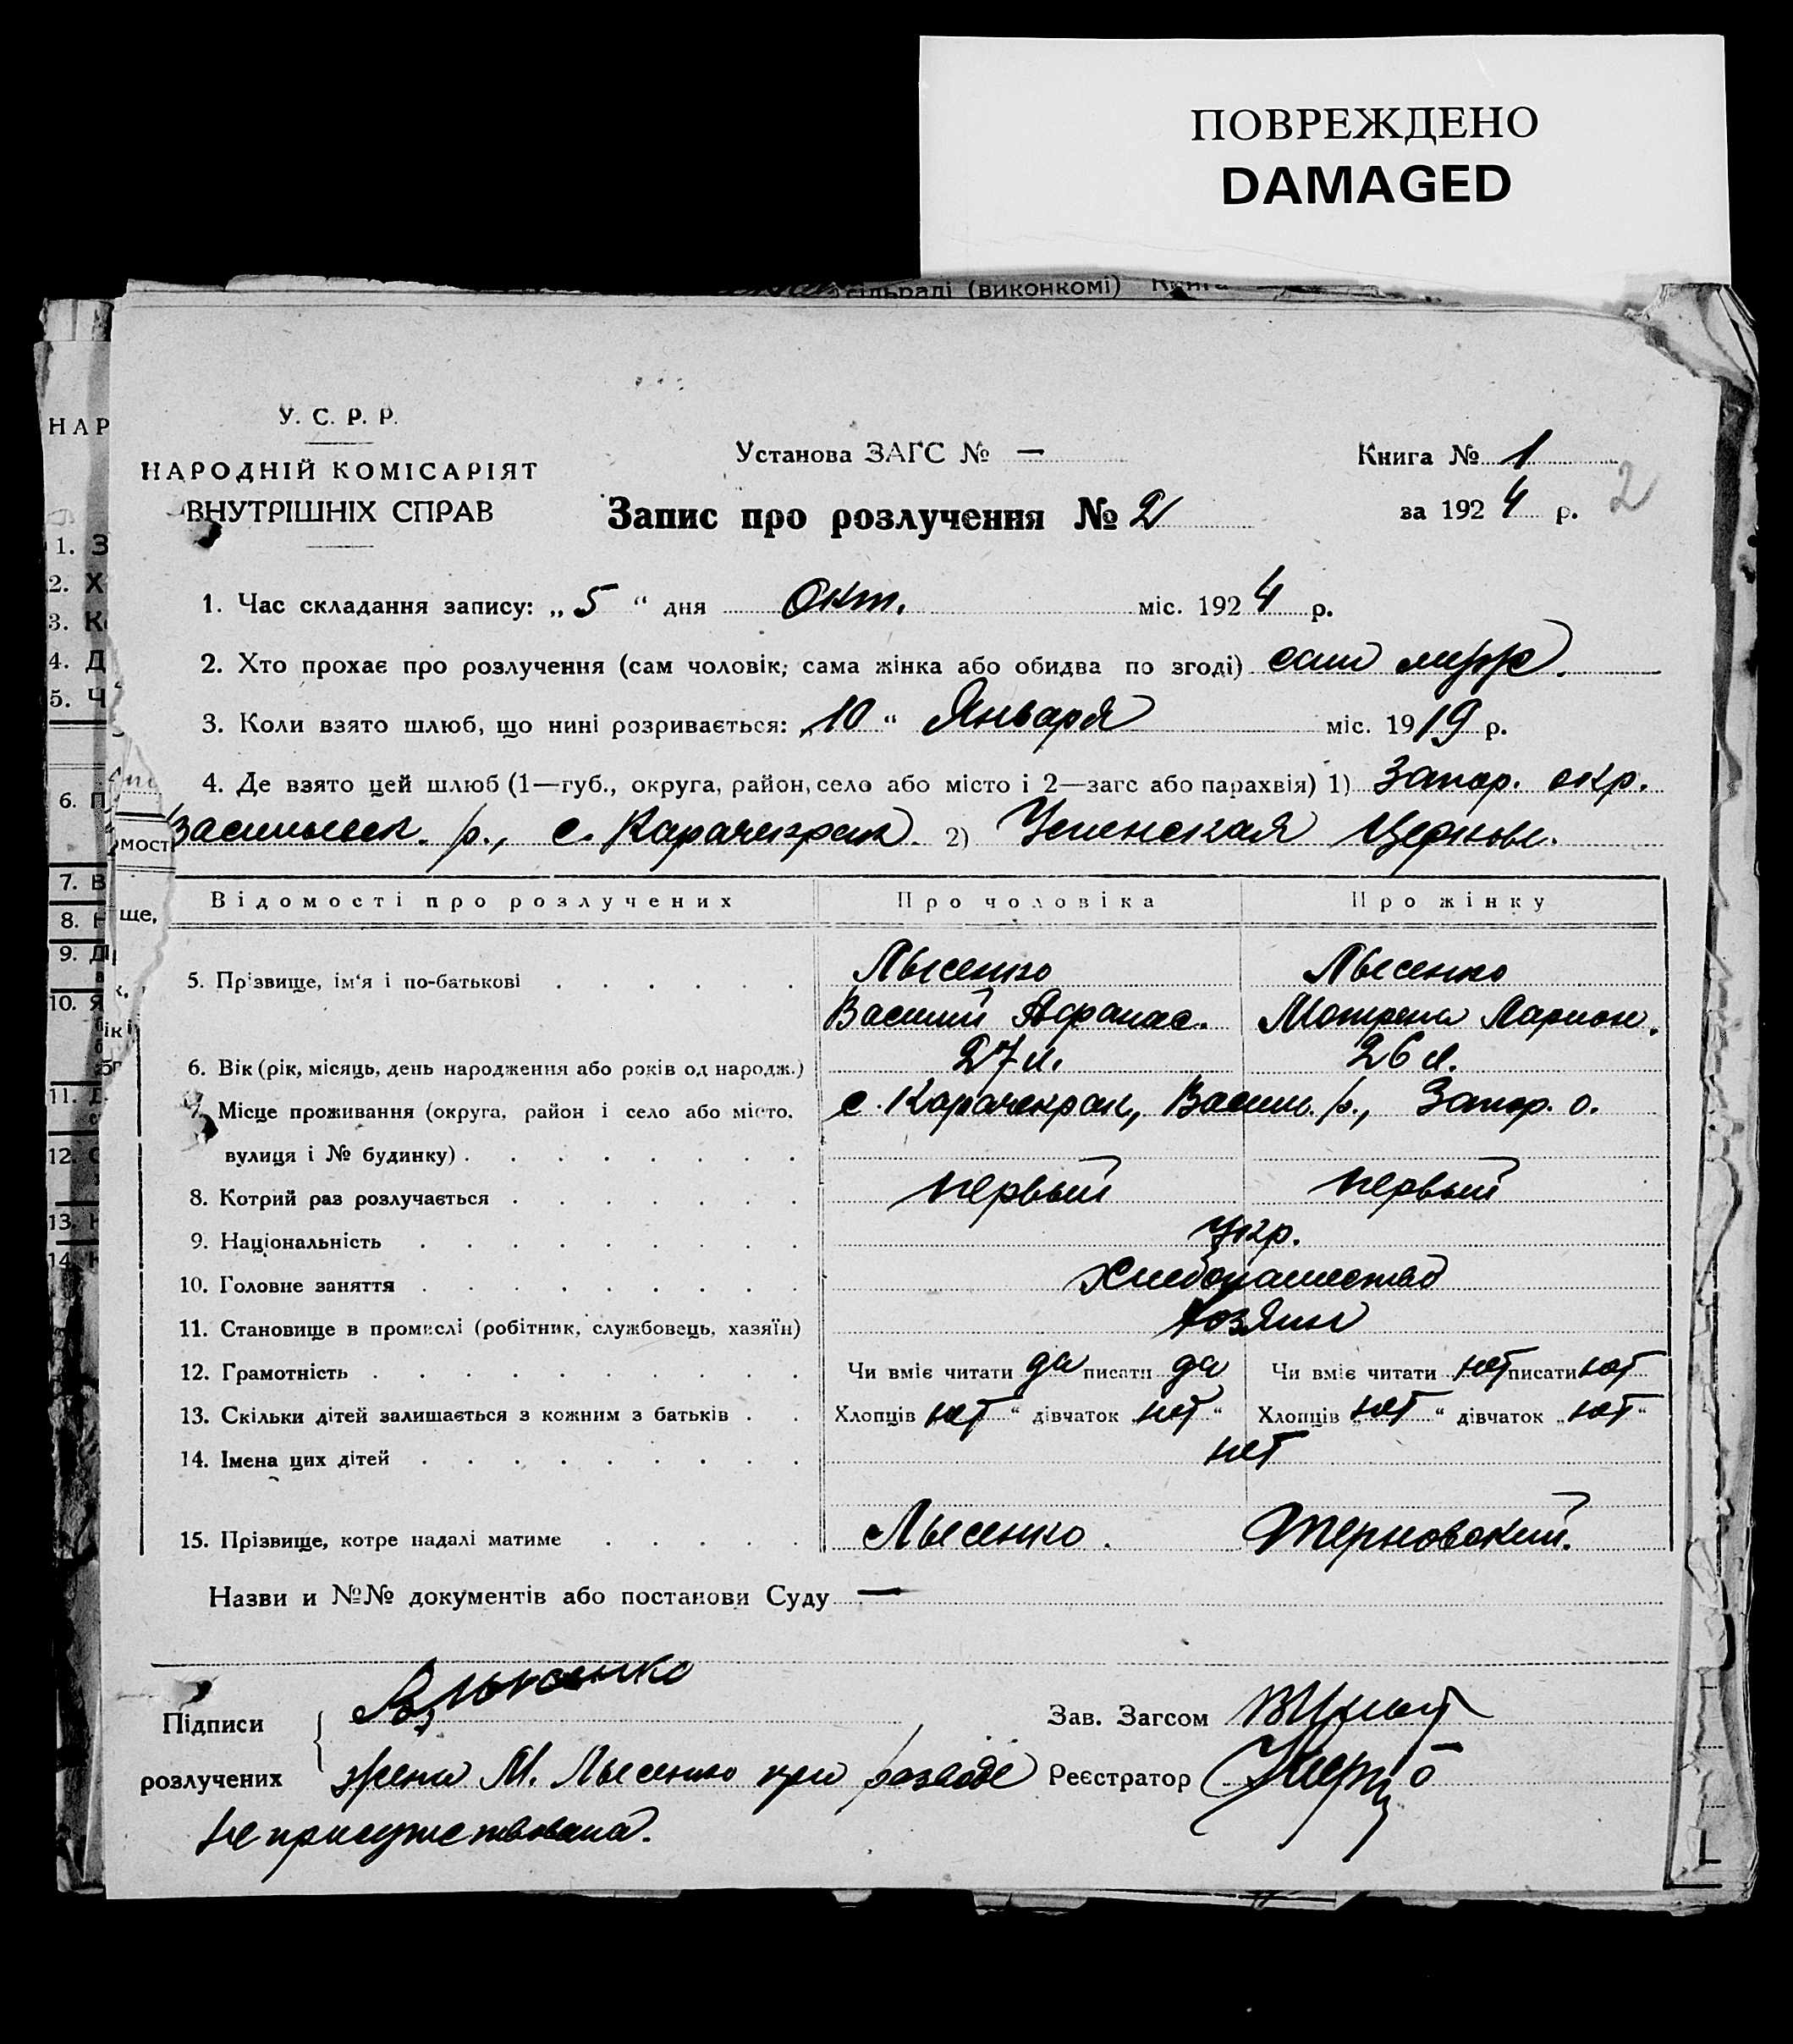 ПОВРЕЖДЕНО
DAMAGED
сільраді (виконкомі) Книга
У. С. Р. Р.
НАРОДНІЙ КОМІСАРІЯТ
ВНУТРІШНІХ СПРАВ
Установа ЗАГС № —
Книга № 1
за 1924 р. 2
Запис про розлучення № 2
1. Час складання запису: „5“ дня Окт. міс. 1924 р.
2. Хто прохає про розлучення (сам чоловік; сама жінка або обидва по згоді) сам муж.
3. Коли взято шлюб, що нині розривається: „10“ Января міс. 1919 р.
4. Де взято цей шлюб (1—губ., округа, район, село або місто і 2—загс або парахвія) 1) Запор. окр.
Васильевск. р., с. Карачекрак. 2) Успенская Церковь.
Відомості про розлучених Про чоловіка Про жінку
5. Прізвище, ім‘я і по-батькові Лысенко Лысенко
Василий Афанас. Мотрена Ларион.
6. Вік (рік, місяць, день народження або років од народж.) 27 л. 26 л.
7. Місце проживання (округа, район і село або місто, с. Карачекрак, Васил. р., Запор. о.
вулиця і № будинку)
8. Котрий раз розлучається первый первый
9. Національність Укр.
10. Головне заняття Хлебопашество
11. Становище в промислі (робітник, службовець, хазяїн) хозяин
12. Грамотність Чи вміє читати да писати да Чи вміє читати нет писати нет
13. Скільки дітей залишається з кожним з батьків Хлопців нет “ дівчаток „нет“ Хлопців „нет“ дівчаток „нет“
14. Імена цих дітей нет
15. Прізвище, котре надалі матиме Лысенко. Терновский.
Назви и №№ документів або постанови Суду —
Підписи В. Лысенко Зав. Загсом
розлучених жена М. Лысенко при разводе Реєстратор
не присутствовала.